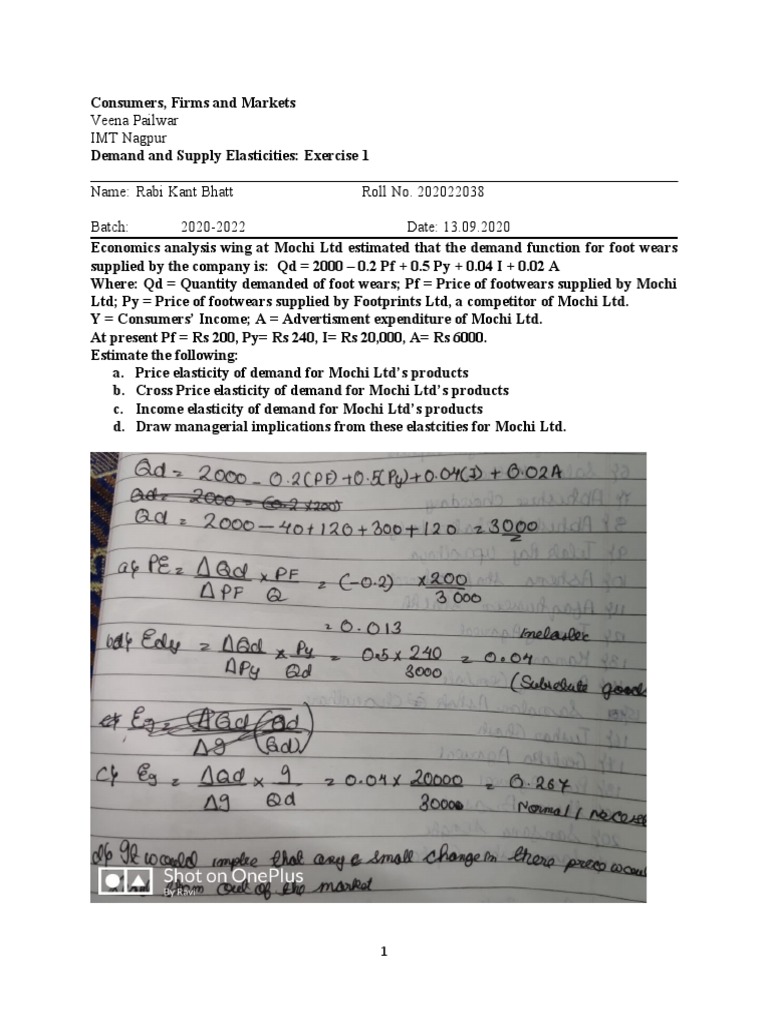 Consumers, Firms and Markets
Veena Pailwar
IMT Nagpur
Demand and Supply Elasticities: Exercise 1
Name: Rabi Kant Bhatt Roll No. 202022038
Batch: 2020-2022 Date: 13.09.2020
Economics analysis wing at Mochi Ltd estimated that the demand function for foot wears
supplied by the company is: Qd = 2000 – 0.2 Pf + 0.5 Py + 0.04 I + 0.02 A
Where: Qd = Quantity demanded of foot wears; Pf = Price of footwears supplied by Mochi
Ltd; Py = Price of footwears supplied by Footprints Ltd, a competitor of Mochi Ltd.
Y = Consumers’ Income; A = Advertisment expenditure of Mochi Ltd.
At present Pf = Rs 200, Py= Rs 240, I= Rs 20,000, A= Rs 6000.
Estimate the following:
a. Price elasticity of demand for Mochi Ltd’s products
b. Cross Price elasticity of demand for Mochi Ltd’s products
c. Income elasticity of demand for Mochi Ltd’s products
d. Draw managerial implications from these elastcities for Mochi Ltd.
Qd = 2000 - 0.2(PF) + 0.5(Py) + 0.04(I) + 0.02A
Qd = 2000 - (0.2 x 200)
Qd = 2000 - 40 + 120 + 300 + 120 = 3000
a) PE = ΔQd x PF = (-0.2) x 200
ΔPF Q 3000
= 0.013 Inelastic
b) Edy = ΔQd x Py = 0.5 x 240 = 0.04
ΔPy Qd 3000
(Subsidute goods
c) Eg = ΔQd x g = 0.04 x 20000 = 0.267
Δg Qd 30000 Normal /
d) It would implie that any a small change in there price
them out of the market
Shot on OnePlus
By Ravi
1